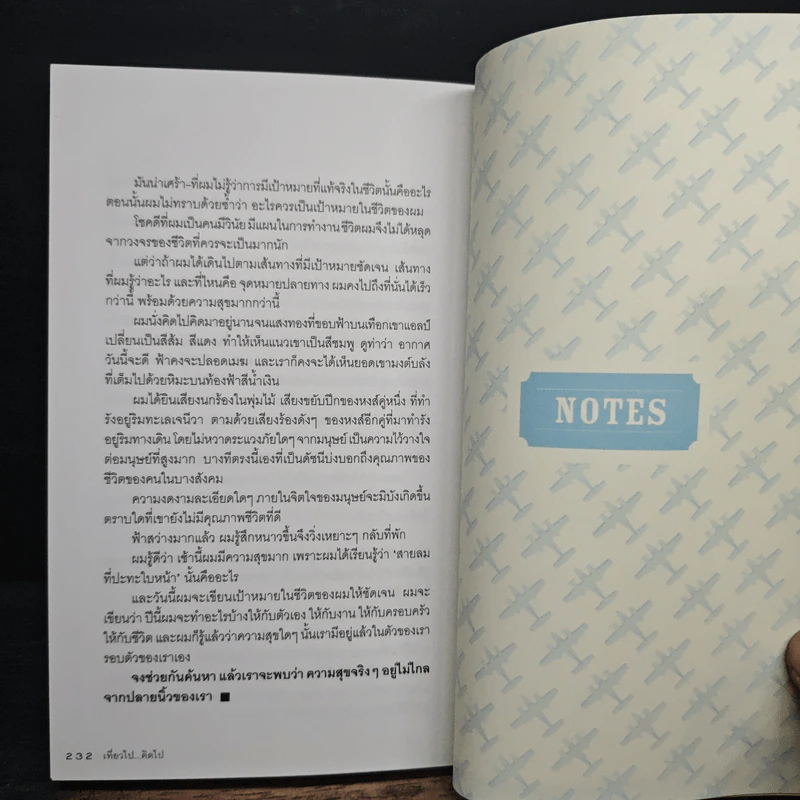 มันน่าเศร้า-ที่ผมไม่รู้ว่าการมีเป้าหมายที่แท้จริงในชีวิตนั้นคืออะไร
ตอนนั้นผมไม่ทราบด้วยซ้ำว่า อะไรควรเป็นเป้าหมายในชีวิตของผม
โชคดีที่ผมเป็นคนมีวินัย มีแผนในการทำงาน ชีวิตผมจึงไม่ได้หลุด
จากวงจรของชีวิตที่ควรจะเป็นมากนัก
แต่ว่าถ้าผมได้เดินไปตามเส้นทางที่มีเป้าหมายชัดเจน เส้นทาง
ที่ผมรู้ว่าอะไร และที่ไหนคือ จุดหมายปลายทาง ผมคงไปถึงที่นั่นได้เร็ว
กว่านี้ พร้อมด้วยความสุขมากกว่านี้
ผมนั่งคิดไปคิดมาอยู่นานจนแสงทองที่ขอบฟ้าบนเทือกเขาแอลป์
เปลี่ยนเป็นสีส้ม สีแดง ทำให้เห็นแนวเขาเป็นสีชมพู ดูท่าว่า อากาศ
วันนี้จะดี ฟ้าคงจะปลอดเมฆ และเราก็คงจะได้เห็นยอดเขามงต์บลัง
ที่เต็มไปด้วยหิมะบนท้องฟ้าสีน้ำเงิน
ผมได้ยินเสียงนกร้องในพุ่มไม้ เสียงขยับปีกของหงส์คู่หนึ่ง ที่ทำ
รังอยู่ริมทะเลเจนีวา ตามด้วยเสียงร้องดังๆ ของหงส์อีกคู่ที่มาทำรัง
อยู่ริมทางเดิน โดยไม่หวาดระแวงภัยใดๆ จากมนุษย์ เป็นความไว้วางใจ
ต่อมนุษย์ที่สูงมาก บางทีตรงนี้เองที่เป็นดัชนีบ่งบอกถึงคุณภาพของ
ชีวิตของคนในบางสังคม
ความงดงามละเอียดใดๆ ภายในจิตใจของมนุษย์จะมิบังเกิดขึ้น
ตราบใดที่เขายังไม่มีคุณภาพชีวิตที่ดี
ฟ้าสว่างมากแล้ว ผมรู้สึกหนาวขึ้นจึงวิ่งเหยาะๆ กลับที่พัก
ผมรู้ดีว่า เช้านี้ผมมีความสุขมาก เพราะผมได้เรียนรู้ว่า 'สายลม
ที่ปะทะใบหน้า' นั้นคืออะไร
และวันนี้ผมจะเขียนเป้าหมายในชีวิตของผมให้ชัดเจน ผมจะ
เขียนว่า ปีนี้ผมจะทำอะไรบ้างให้กับตัวเอง ให้กับงาน ให้กับครอบครัว
ให้กับชีวิต และผมก็รู้แล้วว่าความสุขใดๆ นั้นเรามีอยู่แล้วในตัวของเรา
รอบตัวของเราเอง
จงช่วยกันค้นหา แล้วเราจะพบว่า ความสุขจริงๆ อยู่ไม่ไกล
จากปลายนิ้วของเรา ■
232 เที่ยวไป...คิดไป
NOTES